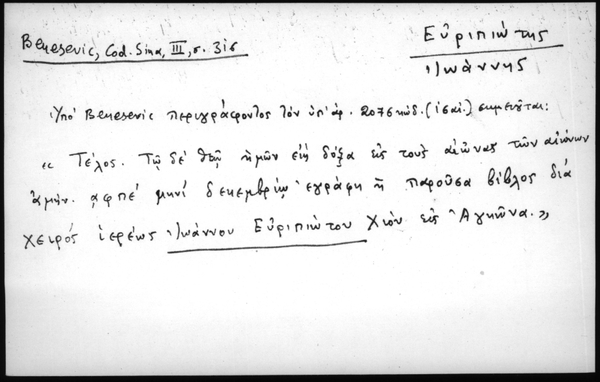 Benesevic, Cod. Sina, III, σ. 316
Εὐριπιώτης
Ἰωάννης
Ὑπό Benesevic περιγράφοντος τόν ὑπ' ἀρ. 2076 κώδ. (ἰσαί.) σημειοῦται:
« Τέλος. Τῷ δέ θεῷ ἡμῶν εἴη δόξα εἰς τούς αἰῶνας τῶν αἰώνων
ἀμήν. αφπε΄ μηνί δεκεμβρίῳ ἐγράφη ἡ παροῦσα βίβλος διά
χειρός ἱερέως Ἰωάννου Εὐριπιώτου Χίον εἰς Ἀγκῶνα.»